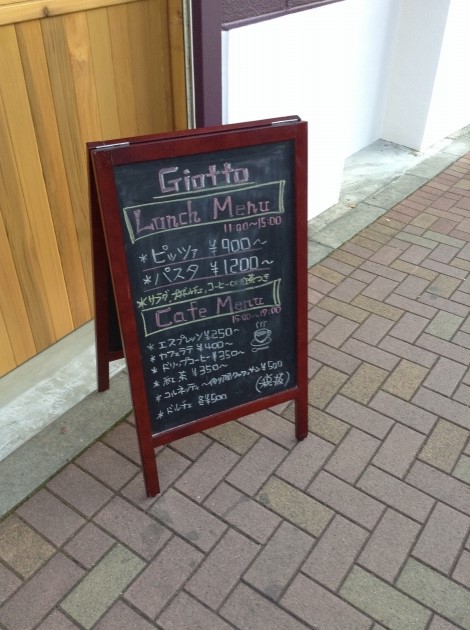 Giotto
Lunch Menu
11:00~15:00
*ピッツァ ¥900~
*パスタ ¥1200~
*サラダ、コーヒーor紅茶つき
Cafe Menu
15:00~17:00
*エスプレッソ ¥250~
*カフェラテ ¥400~
*ドリップコーヒー ¥350~
*紅茶 ¥350~
*コルネッティ ¥500
*ドルチェ 各¥500